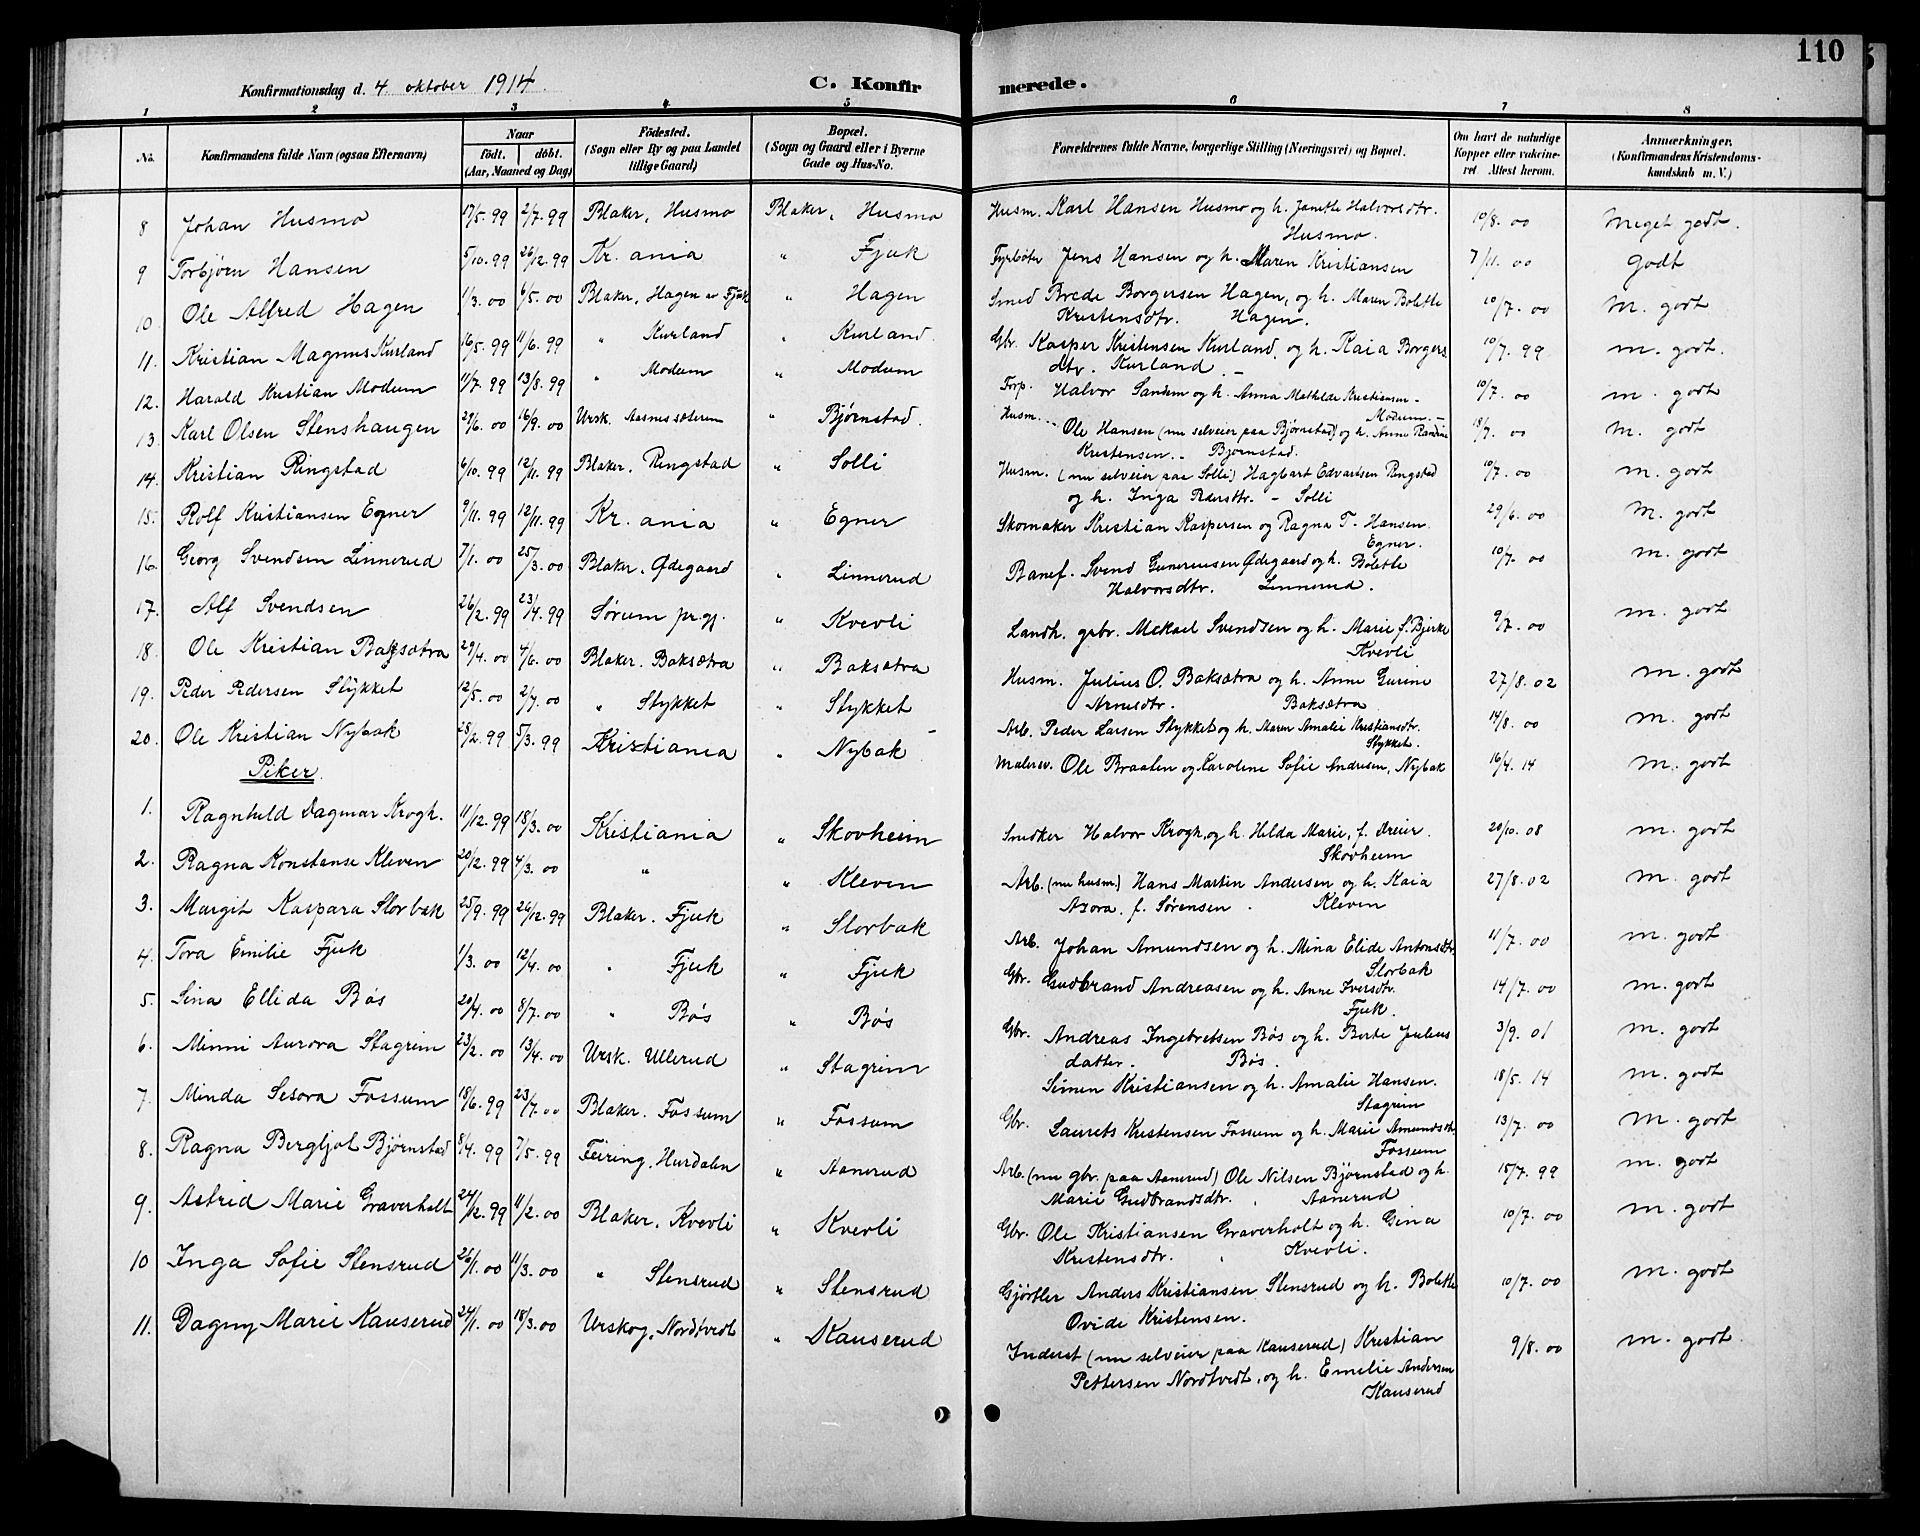 110
Konfirmationsdag d. 4 oktober 1914.
C. Konfirmerede.
1 2 3 4 5 6 7 8
No.
Konfirmandens fulde Navn (ogsaa Efternavn)
Naar
født. døbt.
(Aar, Maaned og Dag)
Födested.
(Sogn eller By og paa Landet
tillige Gaard)
Bopæl.
(Sogn og Gaard eller i Byerne
Gade og Hus-No.
Forældrenes fulde Navne, borgerlige Stilling (Næringsvei) og Bopæl.
Om havt de naturlige
Kopper eller vaccineret
Attest herom.
Anmærkninger.
(Konfirmandens Kristendoms-
kundskab m. V.)
8 Johan Husmo 17/5.99 2/7.99 Blaker, Husmo Blaker, Husmo Husm. Karl Hansen Husmo og h. Janette Halvorsdtr. 10/8.00 Meget godt.
Husmo.
9 Torbjørn Hansen 5/10.99 26/12.99 Kr.ania " Fjuk Fyrbøter Jens Hansen og h. Maren Kristiansen 7/11.00 Godt
10. Ole Alfred Hagen 1/3.00 6/5.00 Blaker, Hagen u. Fjuk " Hagen Smed Brede Borgersen Hagen, og h. Maren Bolette 10/7.00 M. godt
Kristensdtr. Hagen.
11. Kristian Magnus Kurland 16/5.99 11/6.99 " Kurland " Kurland. Gbr. Kasper Kristensen Kurland, og h. Kaia Borgers 10/7.99 m. godt.
dtr. Kurland. -
12. Harald Kristian Modum 11/7.99 13/8.99 " Modum " Modum Forp. Halvor Sandum og h. Anna Mathilde Kristiansen - 10/7.00 m. godt
Modum. -
13. Karl Olsen Stenshaugen 29/6.00 16/9.00 Ursk. Aasnessæteren " Bjørnstad. Husm. Ole Hansen (nu selveier paa Bjørnstad) og h. Anne Randine 18/7.00 M. godt
Kristensen. - Bjørnstad.
14. Kristian Ringstad 6/10.99 12/11.99 Blaker, Ringstad " Solli Husm. (nu selveier paa Solli) Hagbart Edvartsen Ringstad 10/7.00 m. godt
og h. Inga Pedersdtr. - Solli
15. Rolf Kristiansen Egner 9/11.99 12/11.99 Kr.ania " Egner Skomaker Kristian Kaspersen og Ragna T. Hansen. 29/6.00 M. godt
Egner.
16. Georg Svendsen Linnerud 7/1.00 25/3.00 Blaker, Ødegaard " Linnerud Banef. Svend Gunerensen Ødegaard og h. Bolette 10/7.00 m. godt
Halvorsdtr. Linnerud.
17. Alf Svendsen 26/2.99 23/4.99 Sørum pr.gj. " Kvevli Landh. gsbr. Mekael Svendsen og h. Marie f. Bjerke 9/7.00 m. godt
Kvevli
18. Ole Kristian Baksætra 29/4.00 4/6.00 Blaker. Baksætra " Baksætra Husm. Julius O. Baksætra og h. Anne Gurine 27/8.02 m. godt
Arnesdtr. Baksætra
19. Peder Pedersen Stykket 12/5.00 2/7.00 " Stykket " Stykket Arb. Peder Larsen Stykket og h. Maren Amalie Kristiansdtr. 14/8.00 m. godt
Stykket.
20. Ole Kristian Nybak 28/2.99 5/3.99 Kristiania " Nybak Malersv. Ole Braaten og Karoline Sofie Andresen, Nybak 16/4.14 m. godt
Piker
1. Ragnhild Dagmar Krogh. 11/12.99 18/3.00 Kristiania " Skovheim Snedker Halvor Krogh, og h. Hilda Marie, f. Dreier. 20/10.08 m. godt
Skovheim
2. Ragna Konstanse Kleven 20/12.99 4/3.00 " " Kleven Arb. (nu husm.) Hans Martin Andersen og h. Kaia 27/8.02 m. godt
Azora. f. Sørensen. Kleven
3. Margit Kaspara Storbak 25/9.99 26/12.99 Blaker. Fjuk " Storbak Arb. Johan Amundsen og h. Mina Elide Antonsdtr 11/7.00 m. godt
Storbak
4. Tora Emilie Fjuk 1/3.00 12/4.00 " Fjuk " Fjuk Gbr. Gudbrand Andreasen og h. Anne Iversdtr. 14/7.00 m. godt
Fjuk.
5. Sina Ellida Bøs 20/4.00 8/7.00 " Bøs " Bøs Gbr. Andreas Ingebretsen Bøs og h. Berte Julius 3/9.01 m. godt
datter. Bøs.
6. Minni Aurora Stagrim 23/2.00 13/4.00 Ursk. Ullerud " Stagrim Simen Kristiansen og h. Amalie Hansen. 18/5.14 m. godt
Stagrim
7. Minda Sesora Fossum 18/6.99 23/7.00 Blaker. Fossum " Fossum Gbr. Laurets Kristensen Fossum og h. Marie Amundsdtr. 13/7.00 m. godt
Fossum
8. Ragna Bergljot Bjørnstad 8/4.99 7/5.99 Feiring, Hurdalen " Aanerud Arb. (nu gbr. paa Aanerud) Ole Nilsen Bjørnstad og h. 15/7.99 m. godt
Marie Gudbrandsdtr. Aanerud
9. Astrid Marie Graverholt 24/12.99 11/2.00 Blaker, Kvevli " Kvevli Gbr. Ole Kristiansen Graverholt og h. Gina 10/7.00 m. godt
Kristensdtr. Kvevli.
10 Inga Sofie Stensrud 26/1.00 11/3.00 " Stensrud " Stensrud Gjørtler Anders Kristiansen Stensrud og h. Bolette 10/7.00 m. godt
Ovide Kristensen.
11. Dagny Marie Kauserud 24/1.00 18/3.00 Urskog, Nordtvedt " Kauserud Inderst (nu selveier paa Kauserud) Kristian 9/8.00 m. godt.
Pettersen Nordtvedt, og h. Emelie Andersen
Kauserud